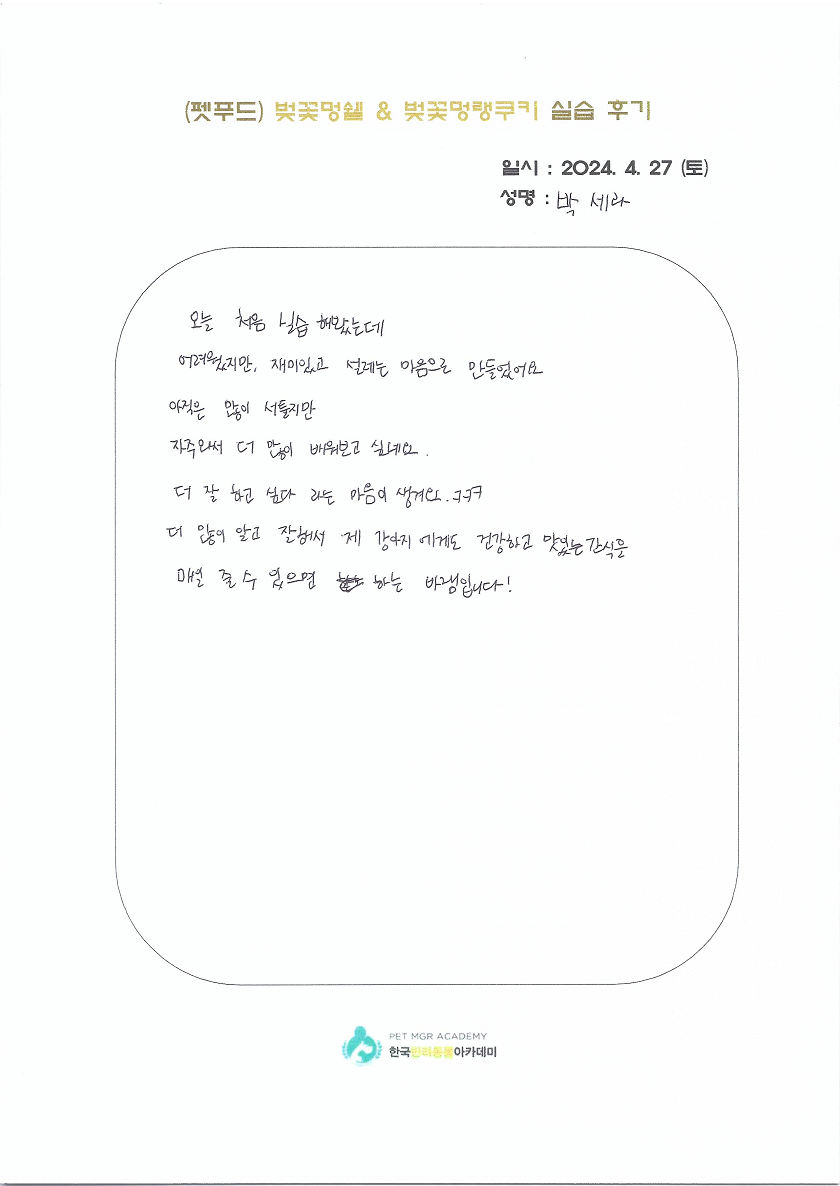 (펫푸드) 벚꽃멍쉘 & 벚꽃멍랭쿠키 실습 후기
일시 : 2024. 4. 27 (토)
성명 : 박 세라
오늘 처음 실습 해봤는데
어려웠지만, 재미있고 설레는 마음으로 만들었어요
아직은 많이 서툴지만
자주와서 더 많이 배워보고 싶네요.
더 잘 하고 싶다 라는 마음이 생겨요.ㅋㅋㅋ
더 많이 알고 잘해서 제 강아지에게도 건강하고 맛있는 간식을
매일 줄 수 있으면 하는 바램입니다!
PET MGR ACADEMY
한국반려동물아카데미